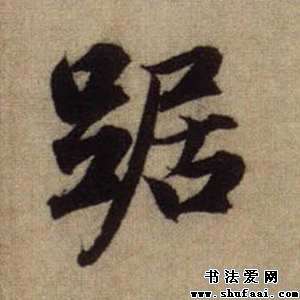 踞
书法爱网
www.shufaai.com